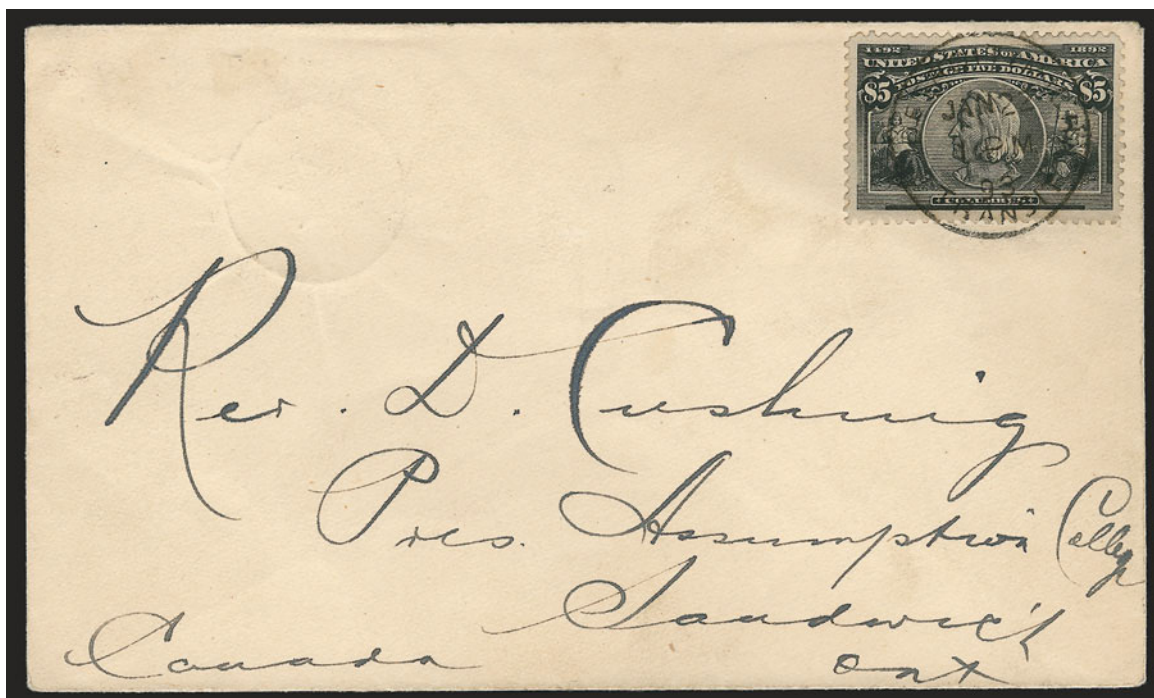 1492 1892
UNITED STATES OF AMERICA
POSTAGE FIVE DOLLARS
$5 $5
JAN
93
TRANSIT
COLUMBUS
Rev. D. Cushing
Pres. Assumption College
Sandwich
Canada Ont